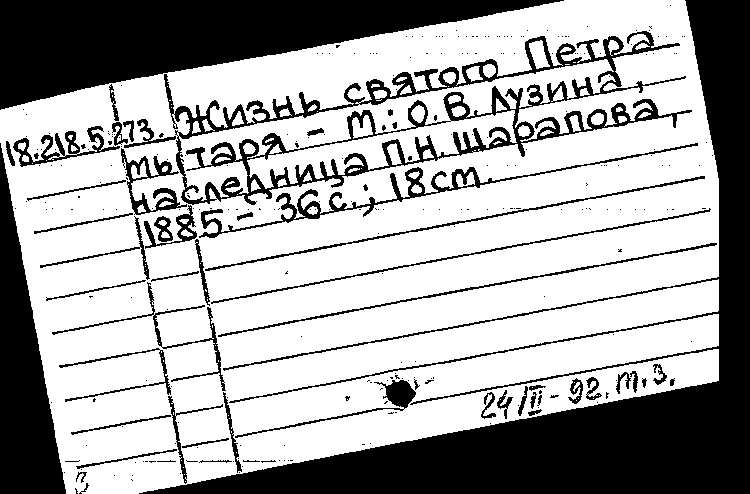 18.218.5.273. Жизнь святого Петра
мытаря. - М.: О.В. Лузина,
наследница П.Н. Шарапова,
1885. - 36 с.; 18 см.
24/II - 92. т. 3.
3